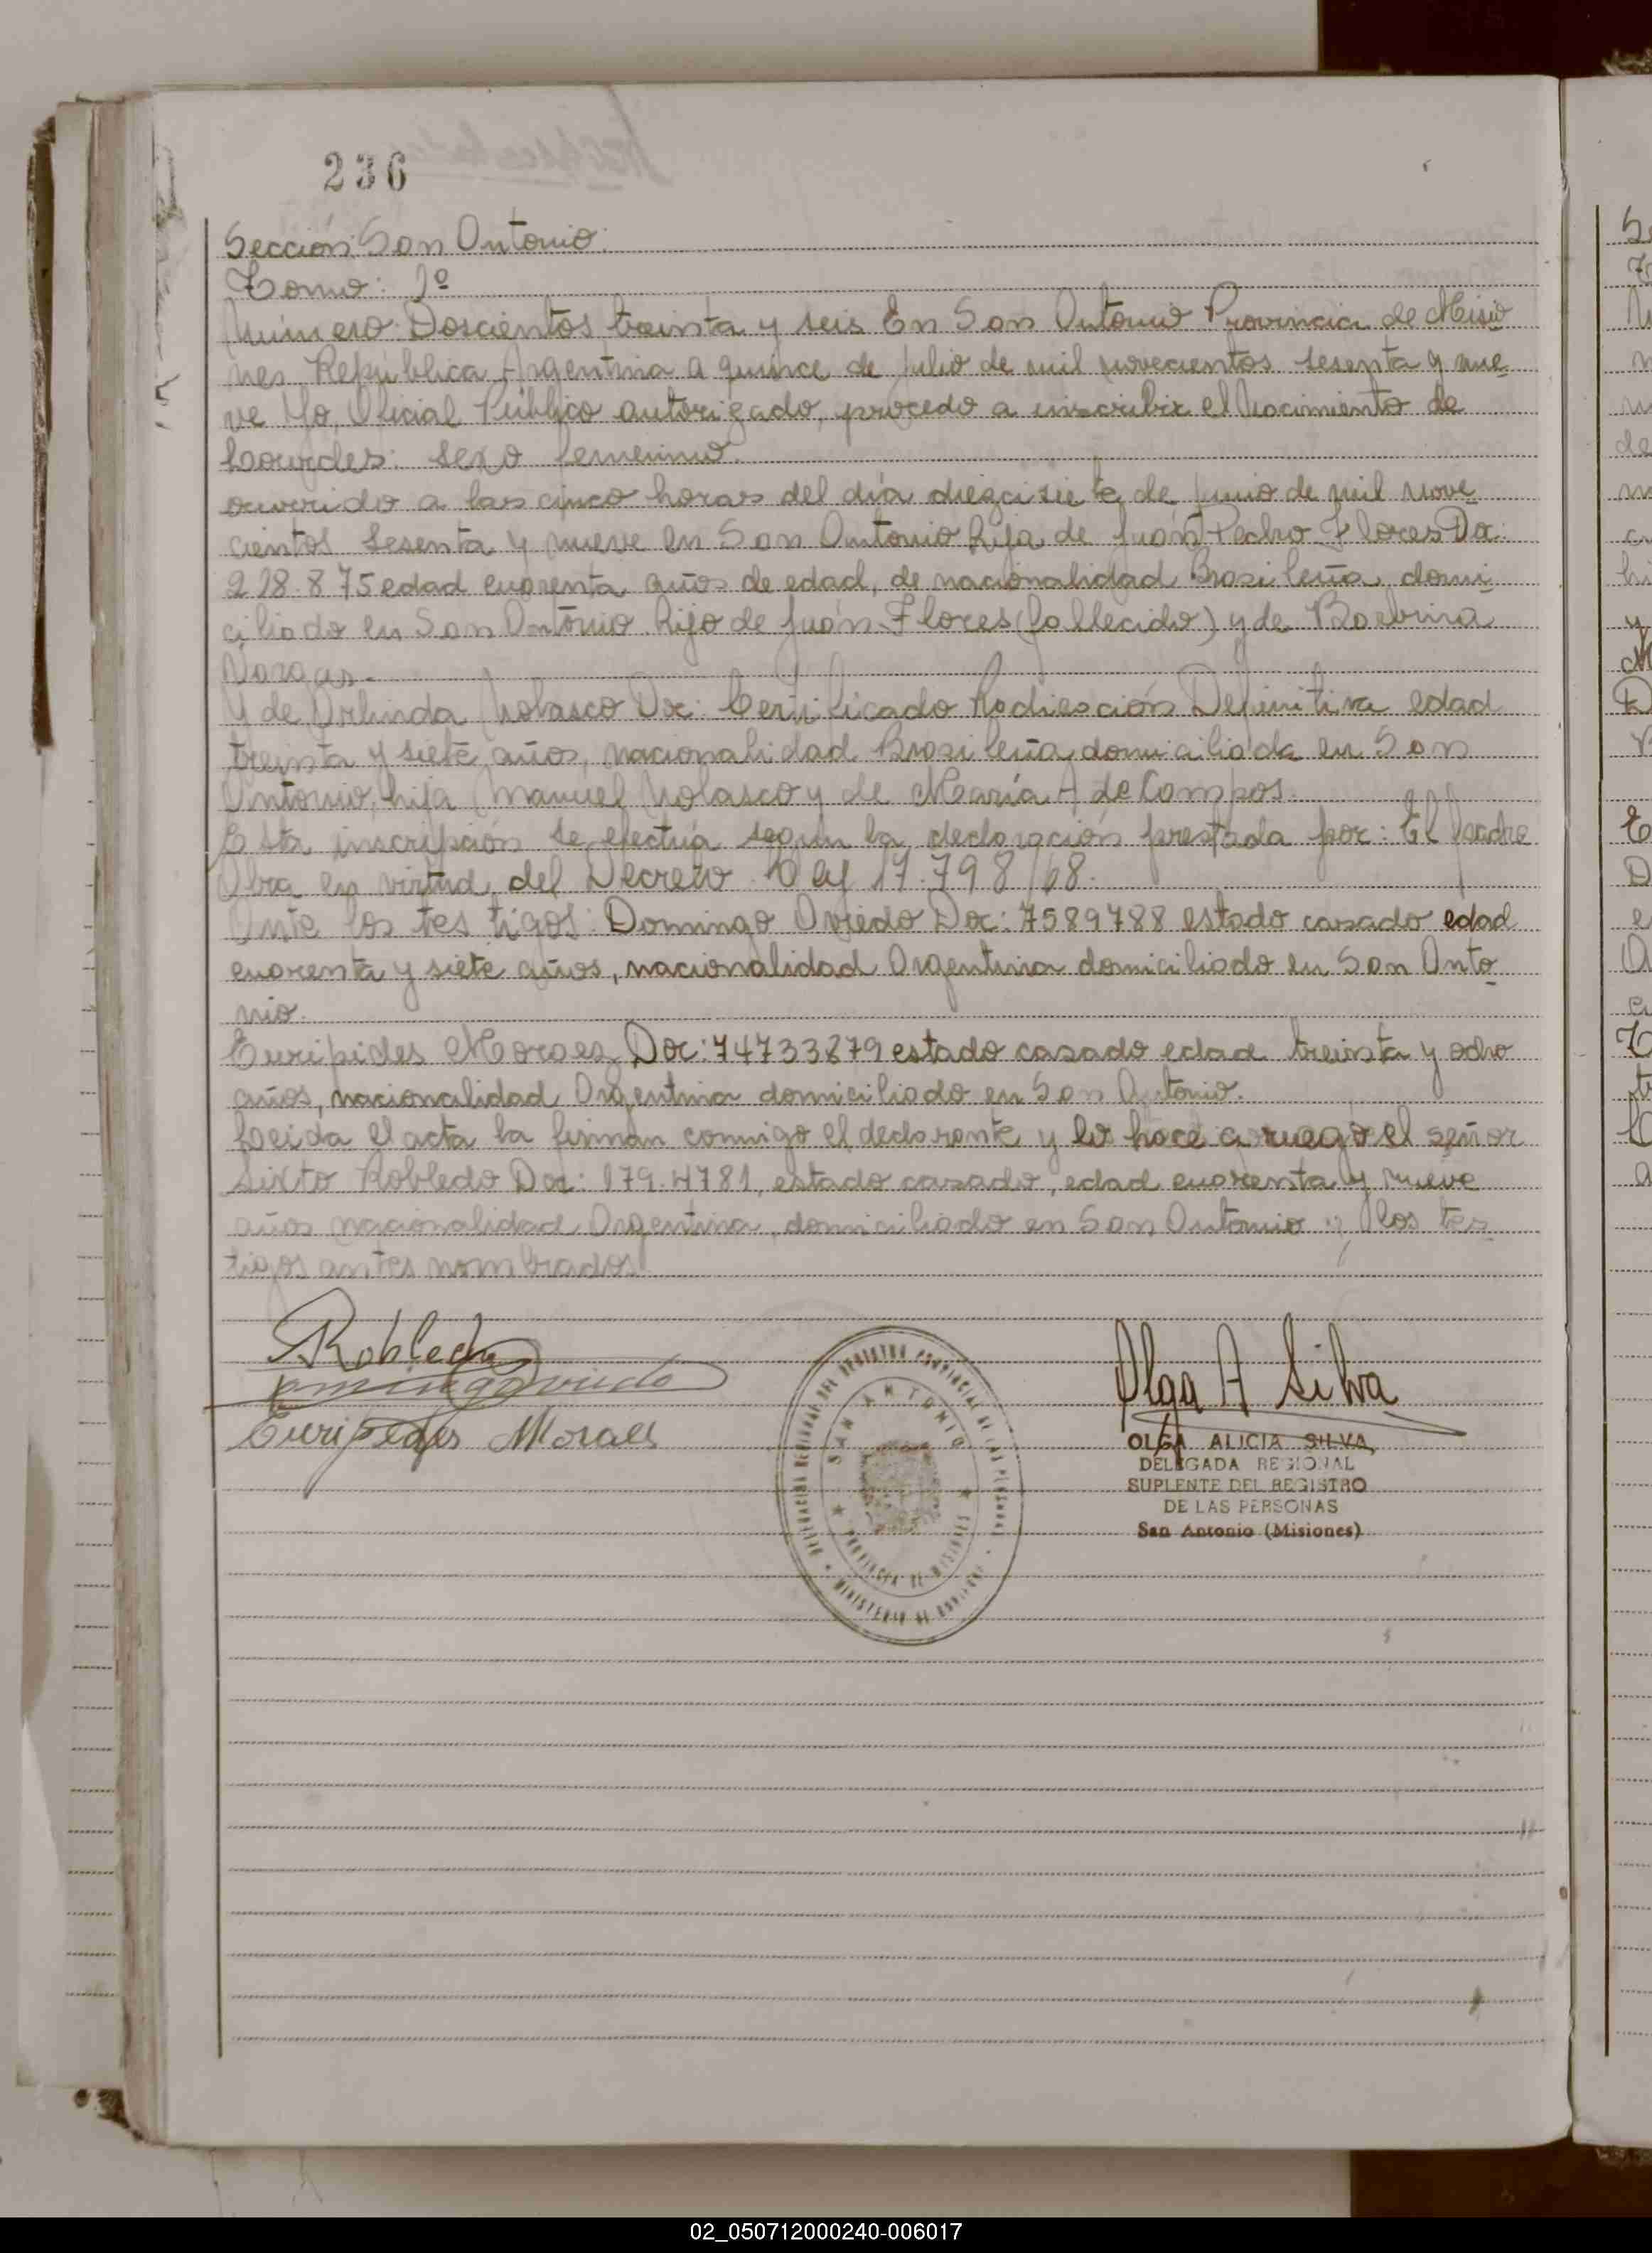 236
Sección: San Antonio.
Tomo: 1º
Número: Doscientos treinta y seis En San Antonio Provincia de Misio
nes República Argentina a quince de julio de mil novecientos sesenta y nue
ve Yo, Oficial Público autorizado, procedo a inscribir el Nacimiento de
Lourdes: sexo femenino.
ocurrido a las cinco horas del día diezcisiete de junio de mil nove
cientos sesenta y nueve en San Antonio hija de Juán Pedro Flores Doc:
228.875 edad cuarenta años de edad, de nacionalidad Brasileña domi
ciliado en San Antonio hijo de Juán Flores (fallecido) y de Barbina
Vargas.
Y de Orlinda Nolasco Doc: Certificado Radicación Definitiva edad
treinta y siete años, nacionalidad Brasileña domiciliada en San
Antonio, hija Manuel Nolasco y de María A de Campos.
Esta inscripción se efectúa según la declaración prestada por: El padre
Obra en virtud del Decreto Ley 17.798/68.
Ante los testigos: Domingo Oviedo Doc: 7589788 estado casado edad
cuarenta y siete años, nacionalidad Argentina domiciliado en San Anto
nio.
Euripides Moraes Doc: 74733879 estado casado edad treinta y ocho
años, nacionalidad Argentina domiciliado en San Antonio.
Leida el acta la firman conmigo el declarante y lo hace a ruego el señor
Sixto Robledo Doc: 179.4781, estado casado, edad cuarenta y nueve
años nacionalidad Argentina, domiciliado en San Antonio y los tes
tigos antes nombrados
Robledo
Domingo Oviedo
Euripedes Moraes
Olga A Silva
OLGA ALICIA SILVA
DELEGADA REGIONAL
SUPLENTE DEL REGISTRO
DE LAS PERSONAS
San Antonio (Misiones)
REGISTRO PROVINCIAL DE LAS PERSONAS
SAN ANTONIO
PROVINCIA DE MISIONES
02_050712000240-006017